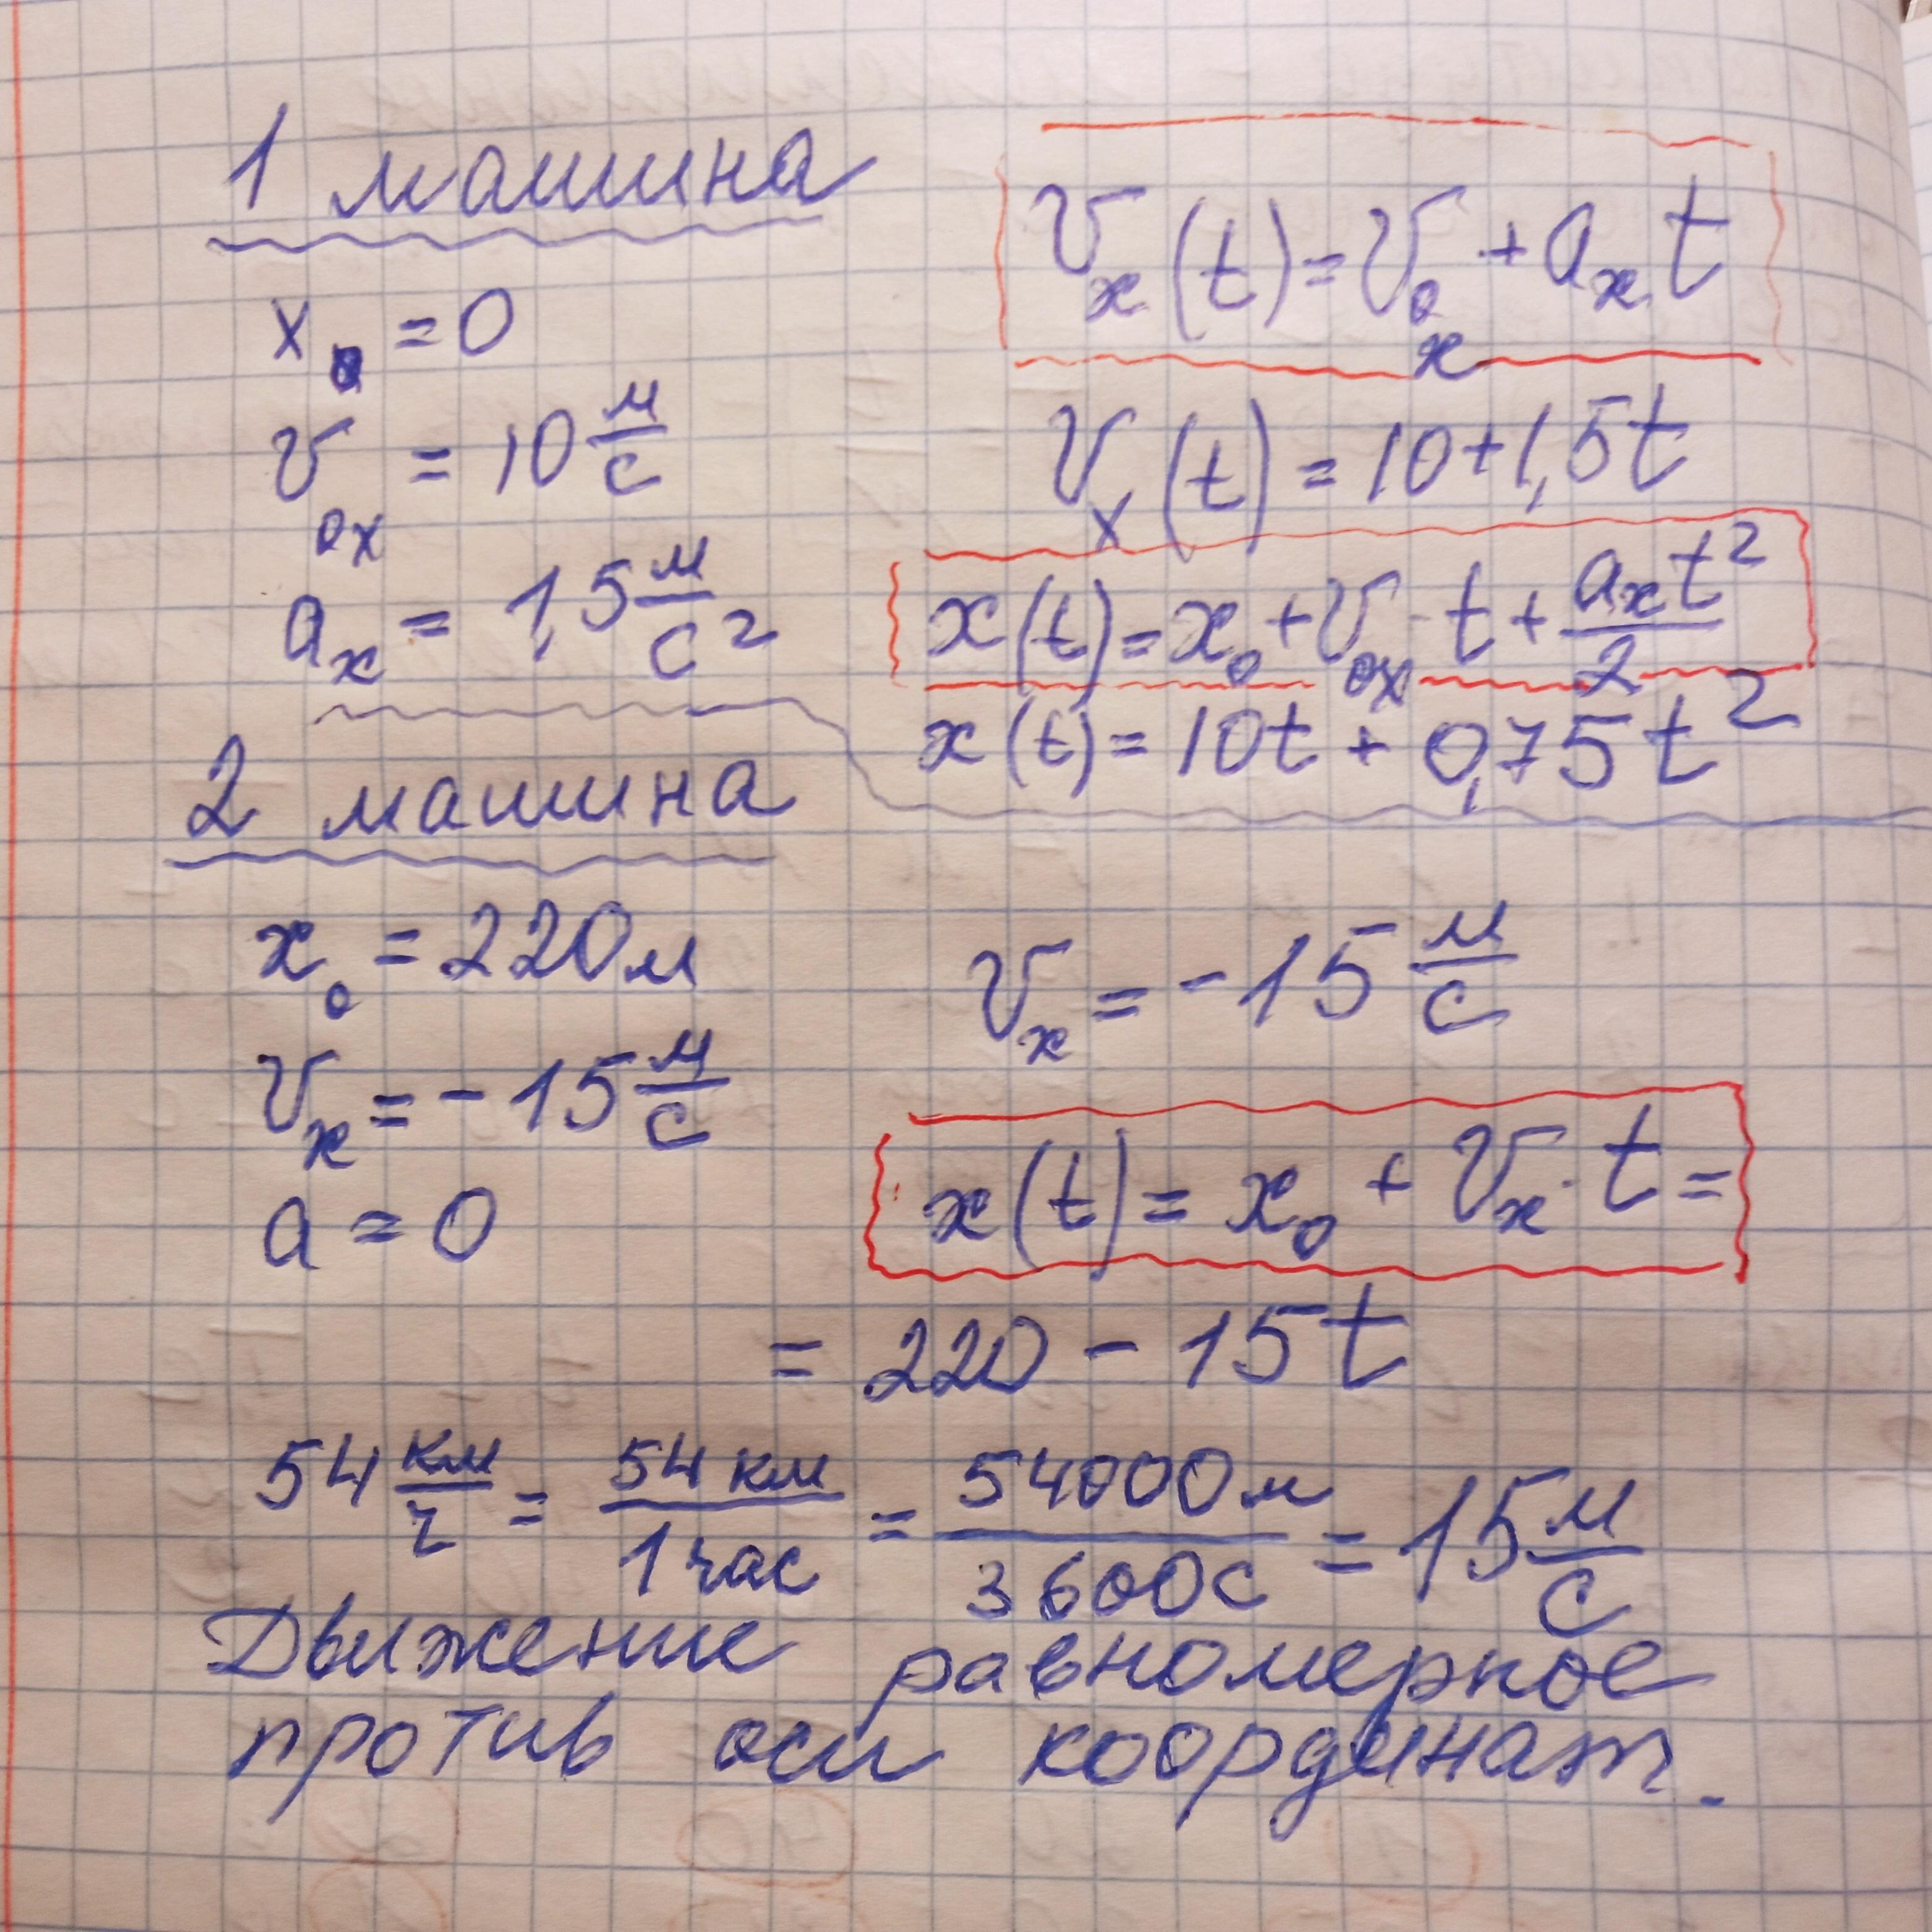 1 машина
x₀ = 0
v₀ₓ = 10 м/с
aₓ = 1,5 м/с²
vₓ(t) = v₀ₓ + aₓt
vₓ(t) = 10 + 1,5t
x(t) = x₀ + v₀ₓ · t + aₓt²/2
x(t) = 10t + 0,75t²
2 машина
x₀ = 220м
vₓ = -15 м/с
a = 0
vₓ = -15 м/с
x(t) = x₀ + vₓ · t =
= 220 - 15t
54 км/ч = 54 км/1 час = 54000м/3600с = 15 м/с
Движение равномерное
против оси координат.